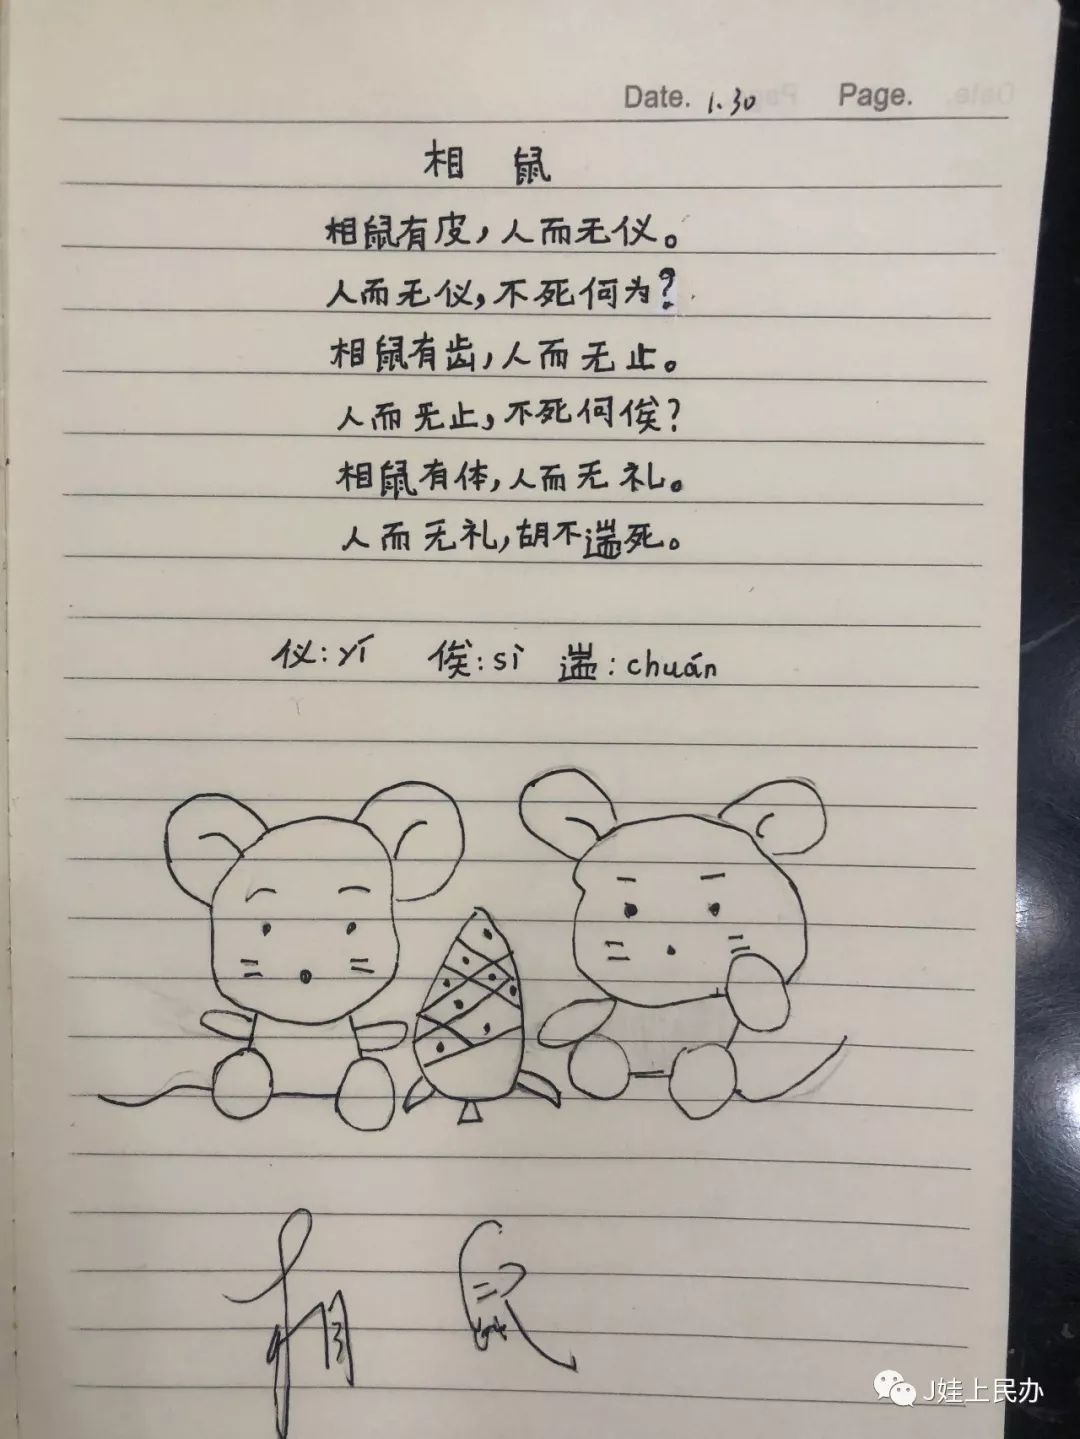 Date. 1.30 Page.
相 鼠
相鼠有皮,人而无仪。
人而无仪,不死何为?
相鼠有齿,人而无止。
人而无止,不死何俟?
相鼠有体,人而无礼。
人而无礼,胡不遄死。
仪:yí 俟:sì 遄:chuán
相 鼠
J娃上民办